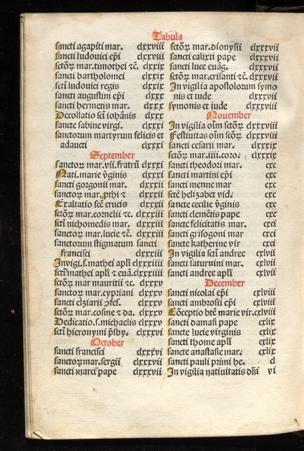 Tabula
sancti agapiti mar. dxxviii
sancti ludouici epi dxxviii
sctoꝝ mar. timothei ⁊c. dxxix
sancti bartholomei dxxix
scti ludouici regis dxxix
sancti augustini epi dxxx
sancti hermetis mar. dxxx
Decollatio scti iohanis dxxx
sancte sabine virgi. dxxxi
sanctorum martyrum felicis et
adaucti dxxxi
September
sanctoꝝ mar. vii. fratrū dxxxi
Nati. marie v̄ginis dxxxi
sancti gorgonii mar. dxxxi
sanctoꝝ mar. ꝓthi ⁊ dxxxi
Exaltatio scte crucis dxxxii
sctoꝝ mar. cornelii ⁊c. dxxxii
scti nichomedis mar. dxxxii
sanctoꝝ mar. lucie ⁊c. dxxxiii
sanctorum stigmatum sancti
francisci dxxxiii
In vigi. s. mathei apli dxxxiii
scti mathei apli ⁊ euā. dxxxiiii
sctoꝝ mar mauritii ⁊c. dxxxv
sanctoꝝ mar. cypriani dxxxv
sancti elziarii ꝯfes. dxxxv
sctoꝝ mar. cosme ⁊ da. dxxxv
Dedicatio. s. michaelis dxxxv
scti hieronymi p̄sby. dxxxvi
October
sancti francisci dxxxvi
sanctoꝝ mar. sergii dxxxvii
sancti marci pape dxxxvii
sctoꝝ mar. dionysii dxxxvii
sancti calixti pape dxxxvii
sancti luce euāg. dxxxvii
sctoꝝ mar. crisanti ⁊c. dxxxvii
In vigilia apostolorum symo
nis et iude dxxxvii
symonis et iude dxxxvii
Nouember
In vigilia oim sctoꝝ dxxxviii
Festiuitas oim sctoꝝ dxxxviii
sancti cesarii mar. dxxxix
sctoꝝ mar. iiii. coro᷒ dxxxix
sancti theodori mar. cxc
sancti martini epi cxc
sancti menne mar cxc
scte helizabet vid. cxc
sancte cecilie v̄ginis cxc
sancti clemētis pape cxc
sancte felicitatis mar. cxci
sancti grisogoni mar cxci
sancte katherine vir cxci
In vigilia scti andree cxlvi
sancti saturnini mar. cxlvii
sancti andree apli cxlvii
December
sancti nicolai epi cxlviii
sancti ambrosii epi cxlviii
Cōceptio btē marie vir. cxlviii
sancti damasi pape cxlix
sancte lucie virginis cxlix
sancti thome apli cxlix
sancte anastasie mar. cxlix
sancti pauli primi he. d
In vigilia natiuitatis dni vi